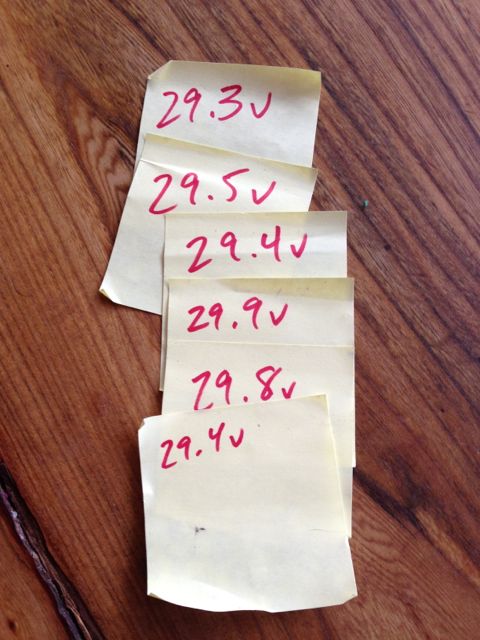 29.3v
29.5v
29.4v
29.9v
29.8v
29.4v